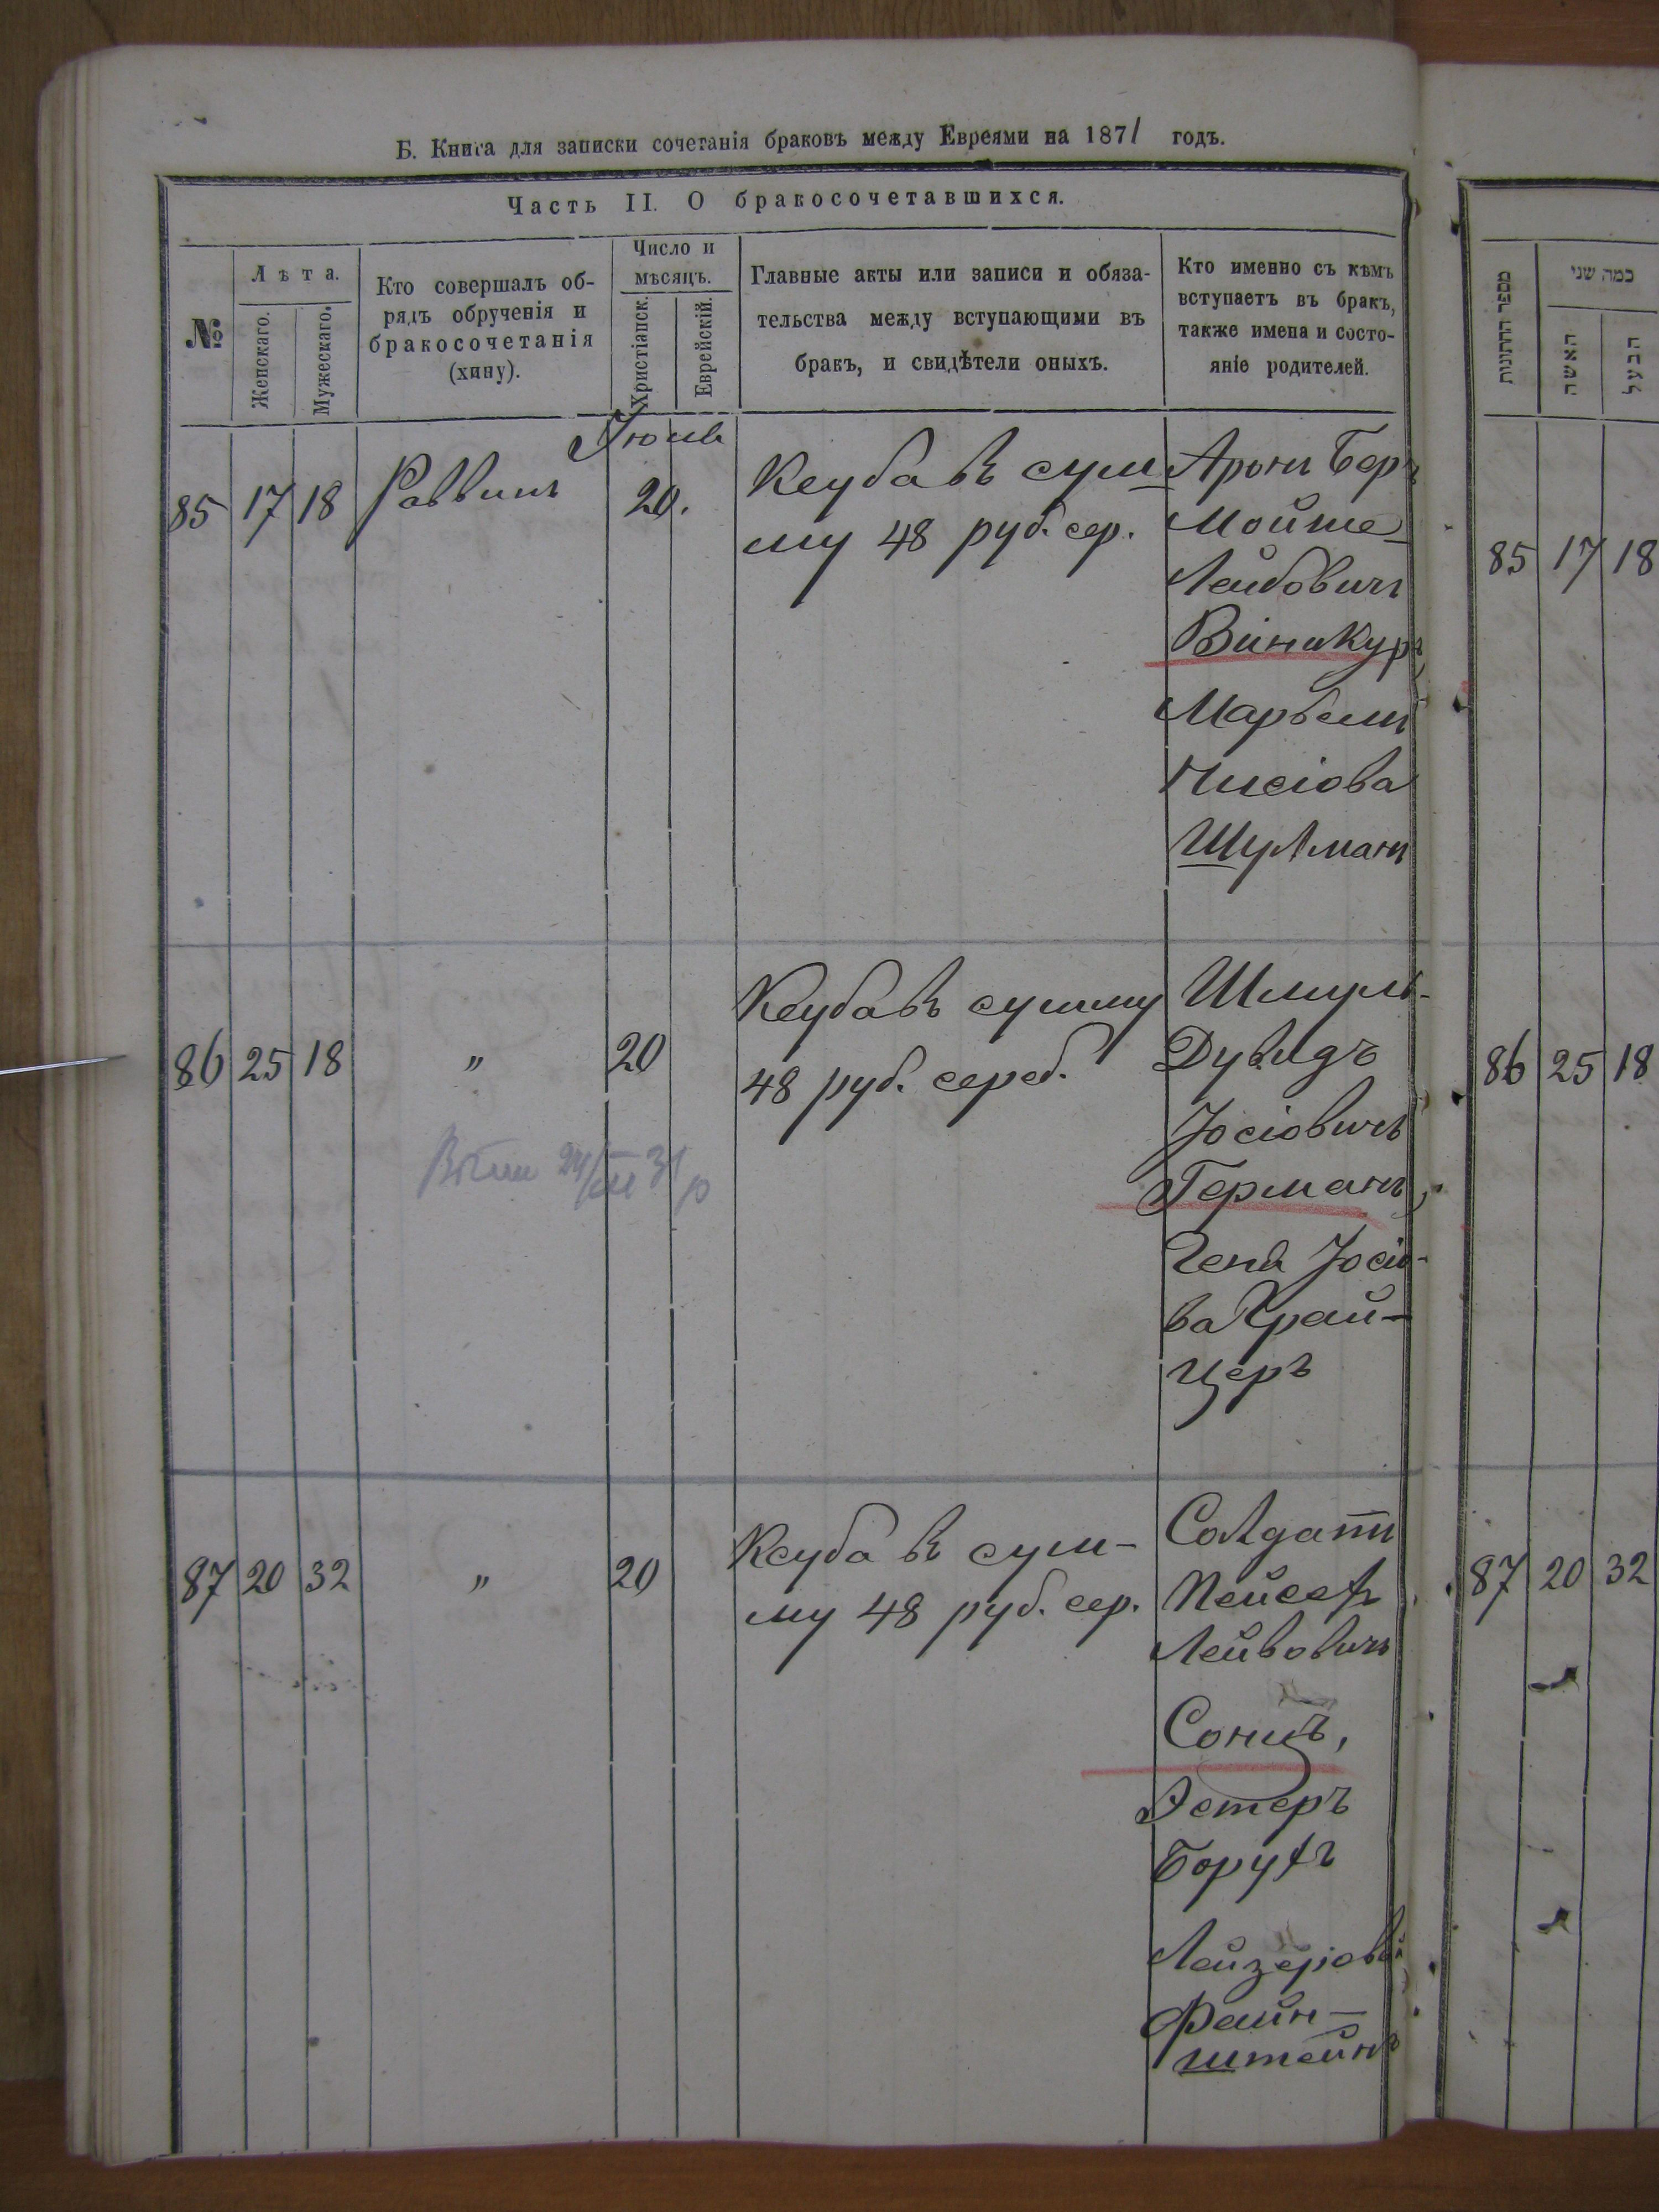 Б. Книга для записки сочетанія браковъ между Евреями на 1871 годъ.
Часть II. О бракосочетавшихся.
№
Лѣта.
Женскаго.
Мужескаго.
Кто совершалъ об-
рядъ обрученія и
бракосочетанія
(хипу).
Число и
мѣсяцъ.
Христіанск.
Еврейскій.
Главные акты или записи и обяза-
тельства между вступающими въ
бракъ, и свидѣтели оныхъ.
Кто именно съ кѣмъ
вступаетъ въ бракъ,
также имена и состо-
яніе родителей.
מספר החתונות
כמה שני
האשה
הבעל
85 17 18 Раввинъ
20.
Ксуба въ сум
му 48 руб. сер.
Аронъ Беръ
Мойше-
Лейбовичъ
Винокуръ,
Нисіова
Шулманъ
85 17 18
86 25 18 " 20
Ксуба въ сумму
48 руб. сереб.
Шмуль-
Дувидъ
Іосіовичъ
Германъ,
Геня Іосіо-
ва Край-
церъ
86 25 18
87 20 32 " 20
Ксуба въ сум-
му 48 руб. сер.
Солдатъ
Пейсахъ
Лейбовичъ
Сонцъ,
Эстеръ
Борухъ
Лейзеріова
Файн-
штейнъ
87 20 32